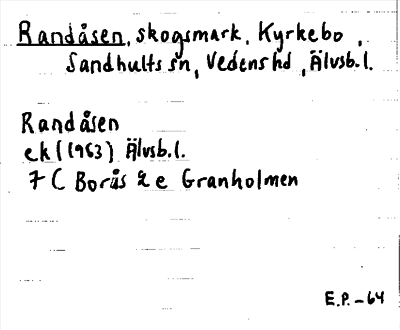 Randåsen, skogsmark, Kyrkebo,
Sandhults sn, Vedens hd, Älvsb. l.
Randåsen
ek (1963) Älvsb. l.
7 C Borås 2 e Granholmen
E.P. - 64